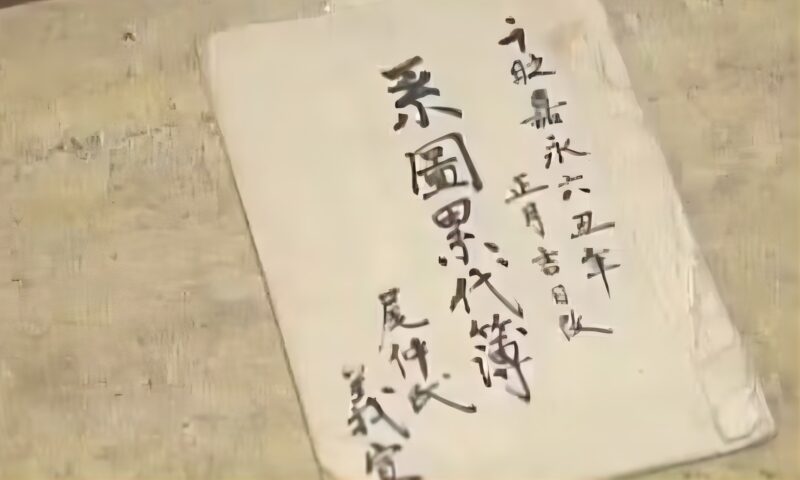 干時嘉永六丑年
正月吉日改
系圖累代簿
尾仲氏
義宣